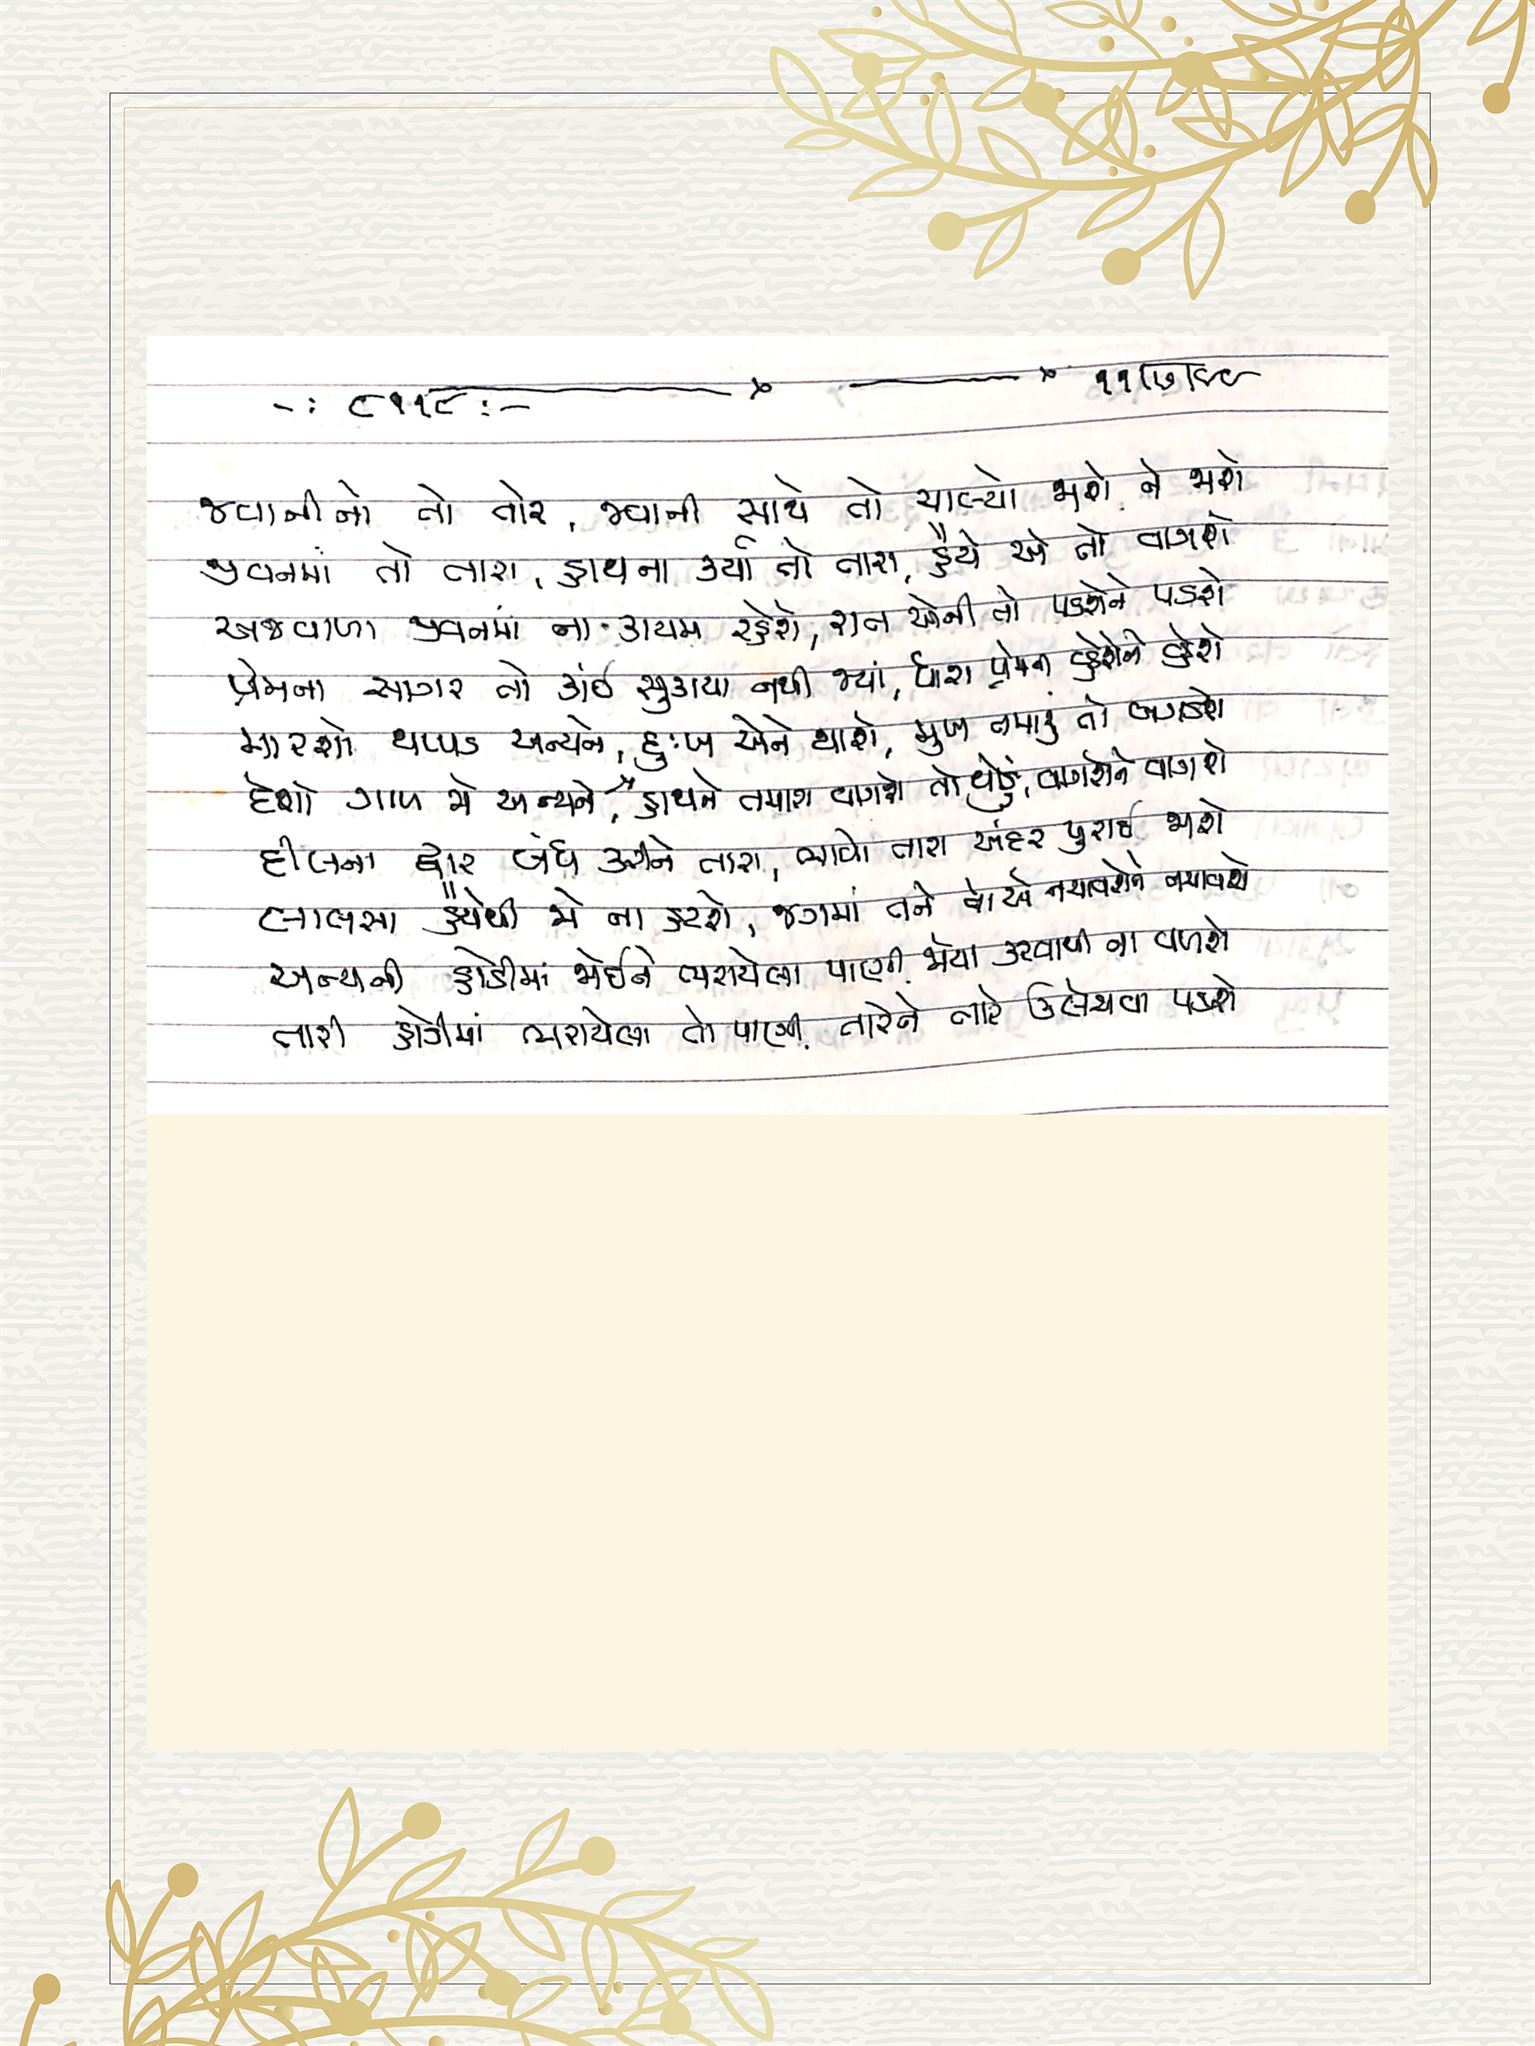 -: ૮૧૧૮ :- ૧૧|૭|૯૯
જવાનીનો તો તોર, જવાની સાથે તો ચાલ્યો જાશે ને જાશે
જીવનમાં તો તારા, હાથના કર્યા તો તારા, હૈયે એ તો વાગશે
અજવાળા જીવનમાં ના કાયમ રહેશે, રાત એની તો પડશેને પડશે
પ્રેમના સાગર તો કાંઈ સુકાયા નથી જ્યાં, ધારા પ્રેમના વ્હેશેને વ્હેશે
મારશો થપ્પડ અન્યને, દુઃખ એને થાશે, મુખ તમારું તો બગડશે
દેશો ગાળ જો અન્યને, હાથને તમારા વાગશે તો થોડું, વાગશેને વાગશે
દીલના દ્વાર બંધ કરીને તારા, ભાવો તારા અંદર પુરાઈ જાશે
લાલસા હૈયેથી જો ના હટશે, જગમાં તને એ નચાવશેને નચાવશે
અન્યની હોડીમાં જોઈને ભરાયેલા પાણી, જોયા કરવાથી ના વળશે
તારી હોડીમાં ભરાયેલા તો પાણી, તારેને તારે ઉલેચવા પડશે